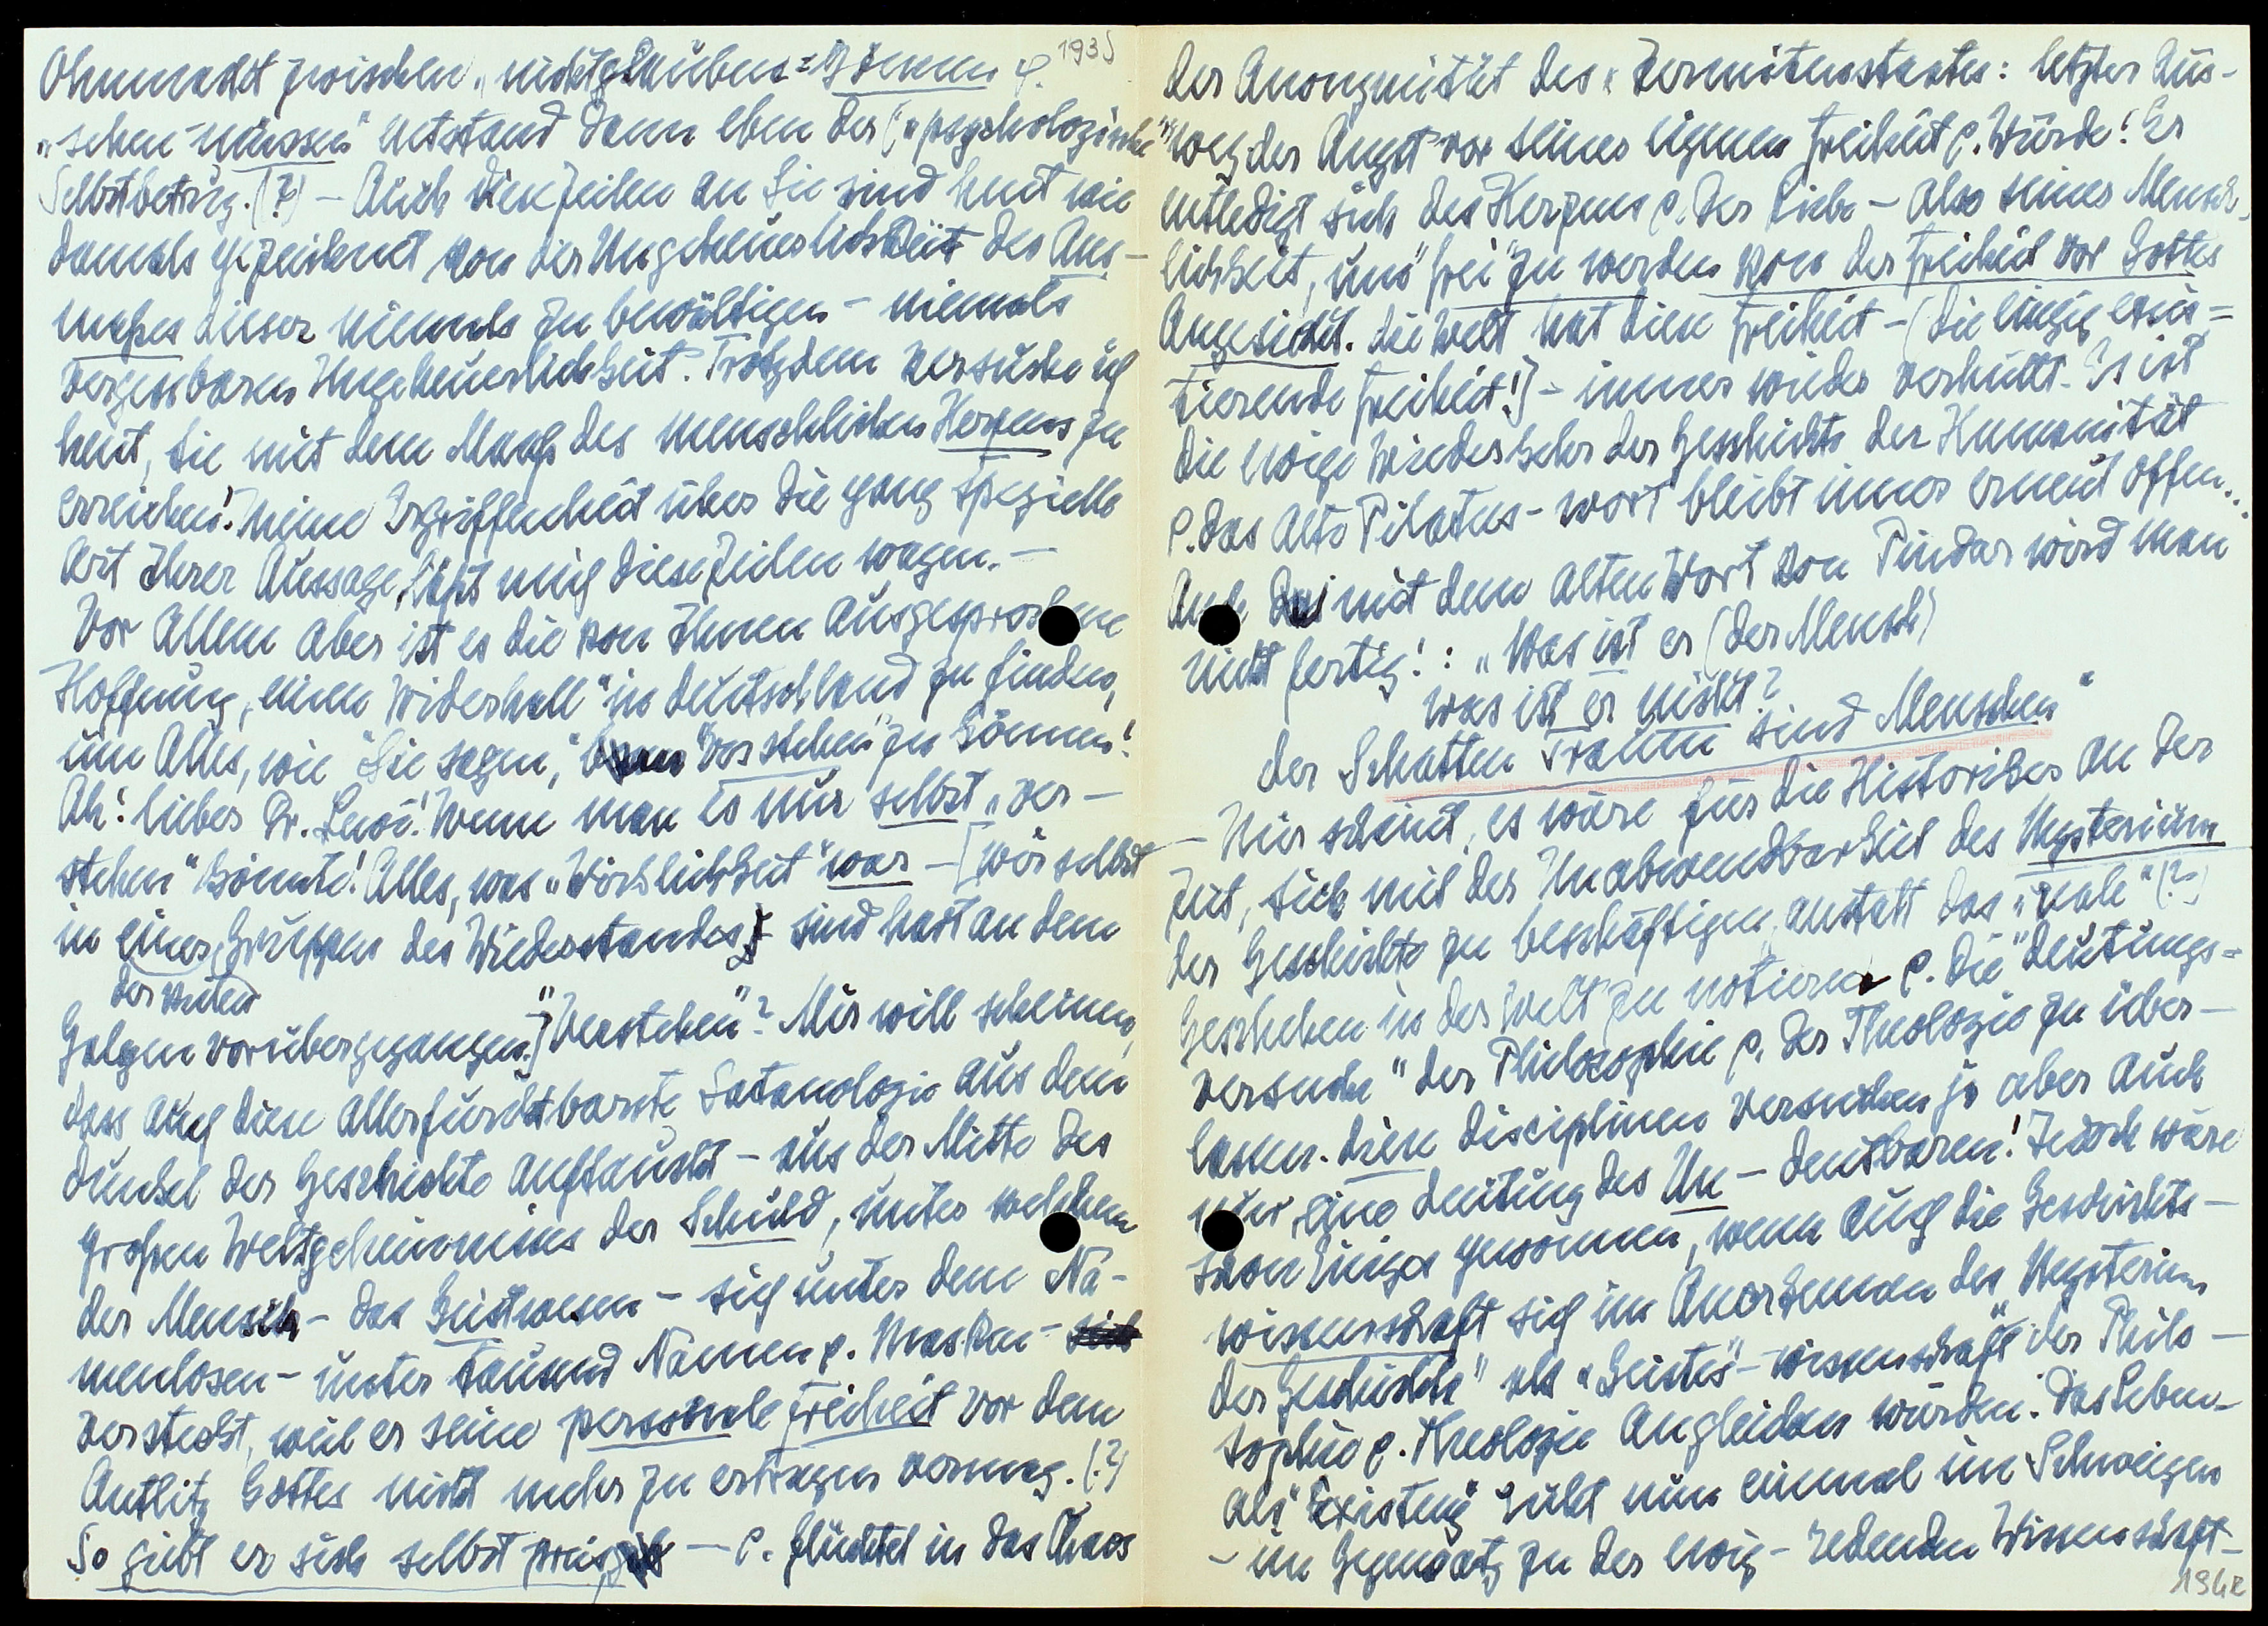 1935
Ohnmacht zwischen „nichtglauben=können u.
„sehen-müssen" entstand dann eben der („psychologische")
Selbstbetrug. (?) – Auch diese Zeilen an Sie sind heut wie
damals gezeichnet von der Ungeheuerlichkeit des Aus-
maßes dieser niemals zu bewältigen – niemals
vergessbaren Ungeheuerlichkeit. Trotzdem versuche ich
heut, Sie mit dem Maaß des menschlichen Herzens zu
erreichen! Meine Ergriffenheit über die ganz spezielle
Art Ihrer Aussage, läßt mich diese Zeilen wagen. –
Vor Allem aber ist es die von Ihnen ausgesprochene
Hoffnung, einen Widerhall" in Deutschland zu finden,
um Alles, wie Sie sagen, verstehen" zu können!
Ah! lieber Dr. Levi! Wenn man es nur selbst „ver-
stehen" könnte! Alles, was „Wirklichkeit" war – [wir selbst
in einer Gruppen des Wiederstandes sind hart an dem
der vielen
Galgen vorübergegangen.] „Verstehen"? Mir will scheinen,
dass auch diese allerfurchtbarste Satanologie aus dem
Dunkel der Geschichte auftaucht – aus der Mitte des
großen Weltgeheimnisses der Schuld, unter welchem
der Mensch – das Geistwesen – sich unter dem Na-
menlosen – unter tausend Namen u. Masken –
versteckt, weil er seine personale Freiheit vor dem
Antlitz Gottes nicht mehr zu ertragen vermag. (?)
So giebt er sich selbst preis – u. flüchtet in das Chaos
der Anonymität des Termitenstaates: letzter Aus-
weg der Angst vor seiner eignen Freiheit u. Würde! Er
entledigt sich des Herzens u. der Liebe – also seiner Mensch-
lichkeit, um "frei" zu werden von der Freiheit vor Gottes
Angesicht. Die Welt hat diese Freiheit – (die einzig exis=
tierende Freiheit!) – immer wieder verhüllt. Es ist
die ewige Wiederkehr der Geschichte der Humanität
u. das alte Pilatus-wort bleibt immer erneut offen...
Auch mit dem alten Wort von Pindar wird man
nicht fertig!: „Was ist er (der Mensch)
was ist er nicht?
der Schatten Traum sind Menschen"
– Mir scheint, es wäre für die Historiker an der
Zeit, sich mit der Unabwendbarkeit des Mysterium
der Geschichte zu beschäftigen, anstatt das „reale" (?)
Geschehen in der Welt zu notieren u. die "Deutungs=
versuche" der Philosophie u. der Theologie zu über-
lassen. Diese Disciplinen versuchen ja aber auch
nur eine Deutung des Un-deutbaren! Jedoch wäre
schon Einiges gewonnen, wenn auch die Geschichts-
wissenschaft sich im Anerkennen des Mysterium
der Geschichte" als „Geistes"-wissenschaft der Philo-
sophie u. Theologie angleichen würden. Das Leben
als "Existenz" ruht nun einmal im Schweigen
– im Gegensatz zu der ewig-redenden Wissenschaft –
1942